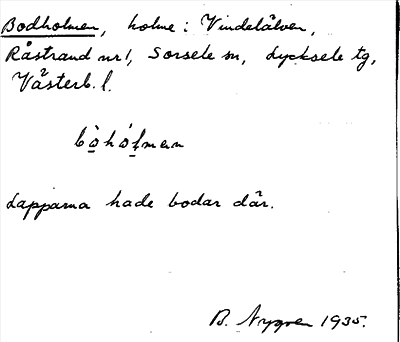 Bodholmen, holme i Vindelälven,
Råstrand nr 1, Sorsele sn, Lycksele tg,
Västerb. l.
bòhólmen
Lapparna hade bodar där.
B. Nygren 1935.